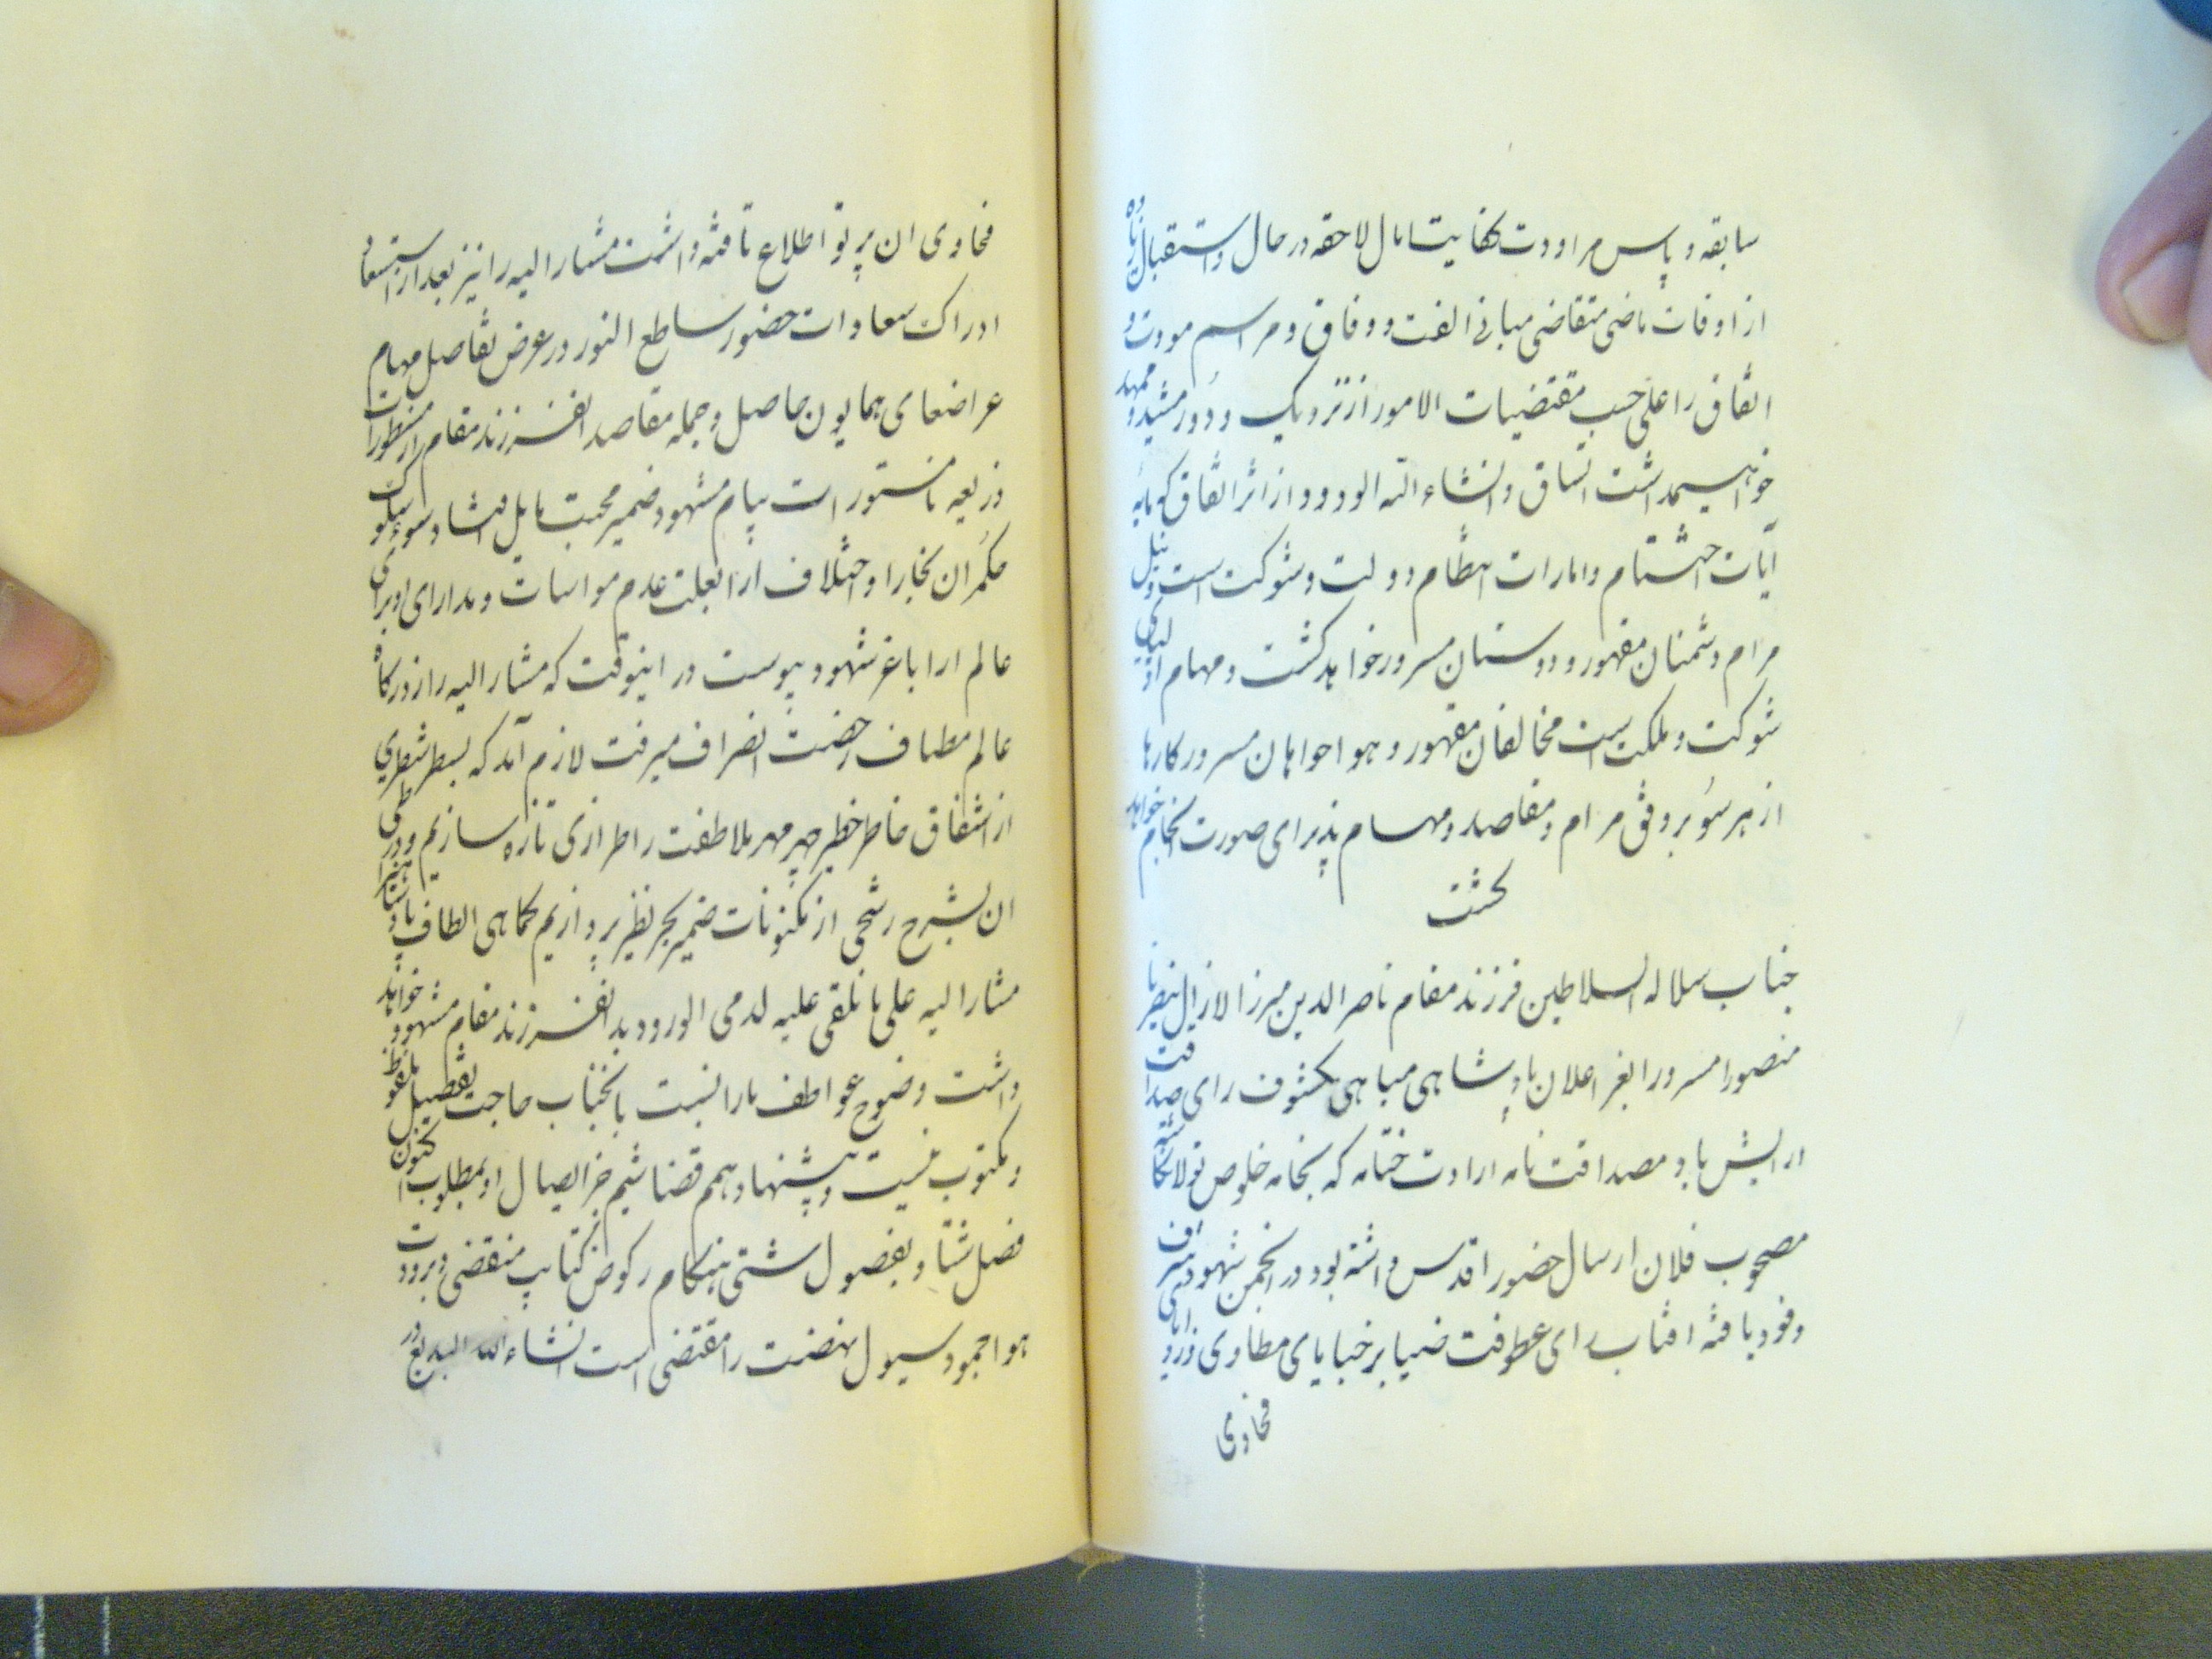 سابقه و پاس مراودت کفایت مال لاحقه در حال و استقبال زیاده
از اوقات ماضی متقاضی مبانی الفت و وفاق و مراسم مودت و
اتفاق را علی حسب مقتضیات الامور از نزدیک و دور مشید و ممهد
خواهیم داشت اتساق و انشاء الله الودود از اثر اتفاق که مایه
آیات احتشام و امارات انتظام دولت و شوکت است و نیل
مرام دشمنان مقهور و دوستان مسرور خواهد گشت و مهام
شوکت و ملکت است مخالفان مقهور و هواخواهان مسرور کارها
از هر سو بر وفق مرام و مقاصد و مهام پذیرای صورت انجام خواهد
گشت
جناب سلاله السلاطین فرزند مقام ناصر الدین میرزا لازال
منصورا مسرورا بغر اعلان پادشاهی مباهی مکشوف رای صداقت
ارایش باد مصداقت نامه ارادت ختامه که بخامه خلوص تولا نگاشته
مصحوب فلان ارسال حضور اقدس داشته بود در انجمن شهود شرف
وفود یافته افتاب رای عطوفت ضیا بر خبایای مطاوی و زوایای
فحاوی
فحاوی ان پرتو اطلاع تافته داشت مشار الیه را نیز بعد از استسعاد
ادراک سعادات حضور ساطع النور در عرض تفاصیل مهام
عراضهای همایون حاصل و جمله مقاصد انفرزند مقام از منظورات
ذریعه تا مستورات پیام مشهود ضمیر محبت مایل افتاد و سوء سلوک
حکمران بخارا و اختلاف ارا بعلت عدم مواسات و مدارا بر رای
عالم ارا باغر شهود پیوست در اینوقت که مشار الیه را از درگاه
عالم مطاف رخصت انصراف میرفت لازم آمد که بسطر شطری
از اشفاق خاطر خطیر چهر مهر ملاطفت را طرازی تازه سازیم و در طی
ان بشرح رشحی از مکنونات ضمیر بحر نظیر پردازیم کماهی الطاف
مشار الیه علی ما تلقی علیه لدی الورود بد انفرزند مقام مشهود خواهد
داشت وضوح عواطف ما را نسبت بانجناب حاجت تفصیل ملفوظ
و مکتوب نیست و پیشنهاد همم قضا شیم جز ایصال او بمطلوب اکنون
فصل شتا و بفصول شتی هنگام رکوض کتایب منقضی و برودت
هوا جمود سیول نهضت را مقتضی است انشاء الله البدیع در